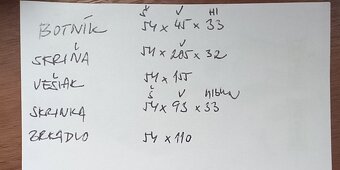 Š V Hl
BOTNÍK 54 x 45 x 33
V
SKRIŇA 54 x 205 x 32
VEŠIAK 54 x 155
Š V hĺbka
SKRINKA 54 x 93 x 33
ZRKADLO 54 x 110